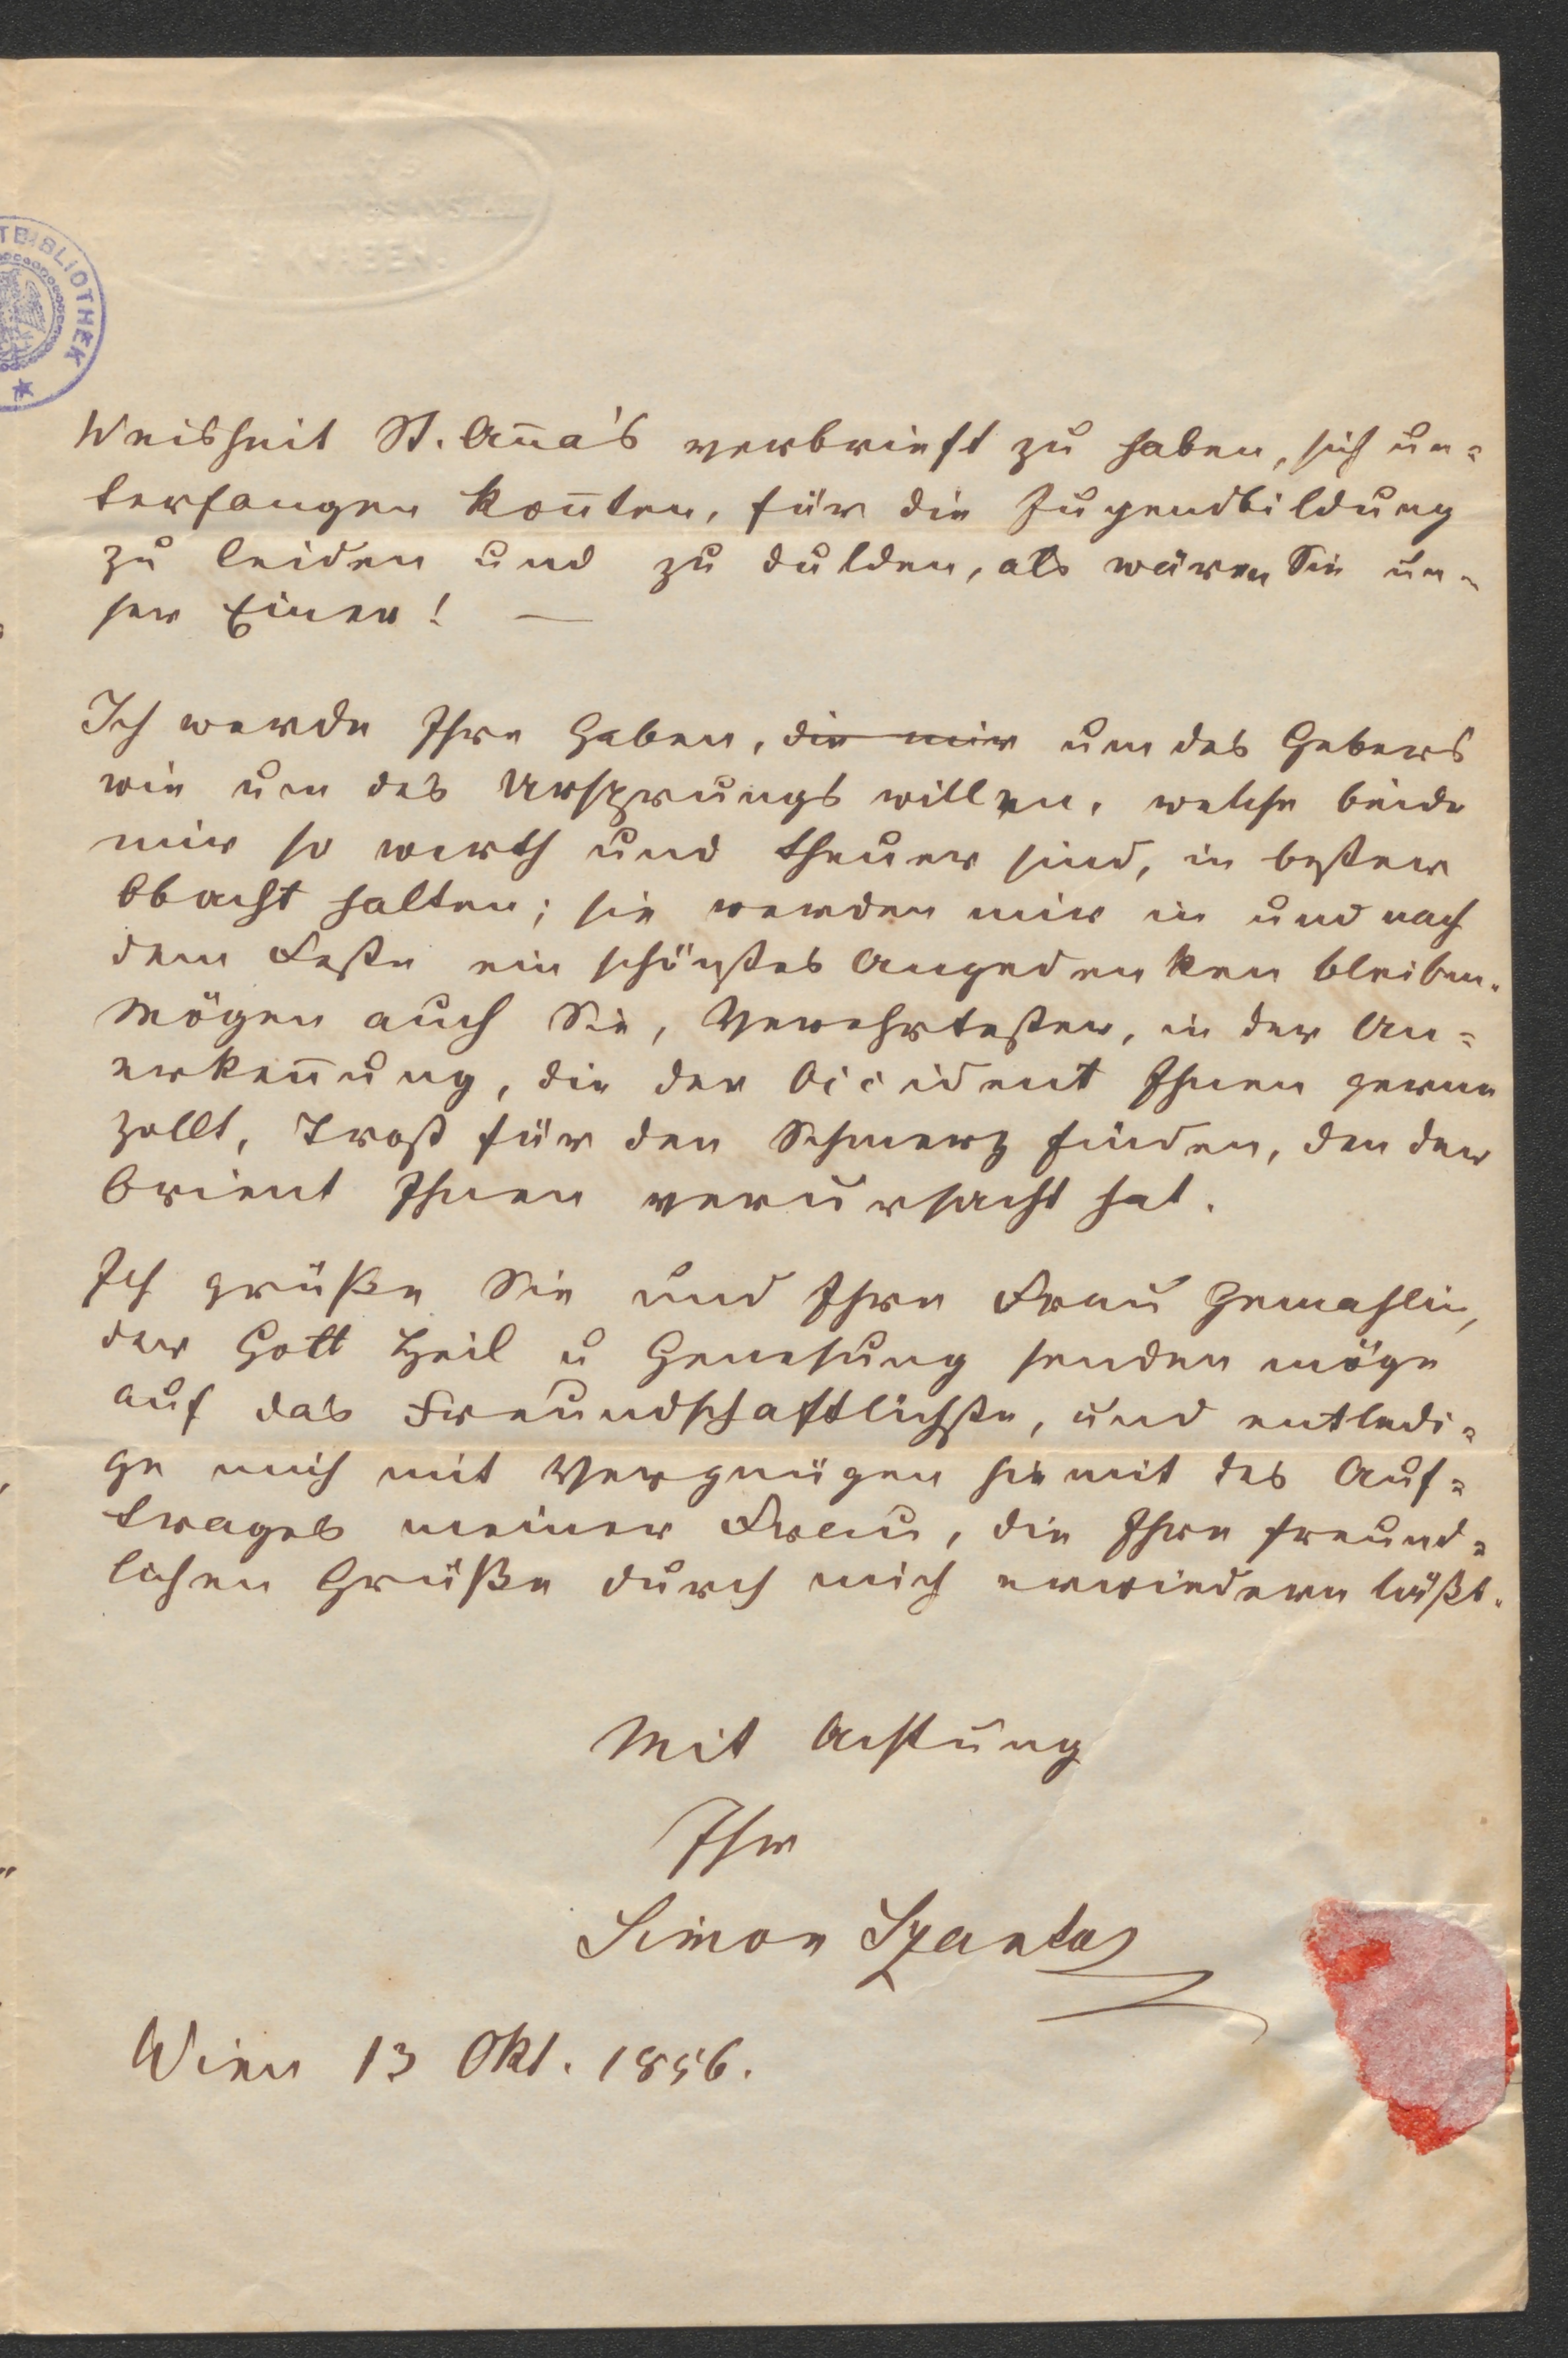 TBIBLIOTHEK
Weisheit St. Anna's verbrieft zu haben, sich un=
terfangen konnten, für die Jugendbildung
zu leiden und zu dulden, als wären Sie un=
ser Einer! —
Ich werde Ihre Gaben, die mir um des Gebers
wie um des Ursprungs willen, welche beide
mir so werth und theuer sind, in bester
Obacht halten; sie werden mir in und nach
dem Feste ein schönstes Angedenken bleiben.
Mögen auch Sie, Verehrtester, in der An=
erkennung, die der Occident Ihnen gerne
zollt, Trost für den Schmerz finden, den der
Orient Ihnen verursacht hat.
Ich grüße Sie und Ihre Frau Gemahlin,
der Gott Heil u Genesung senden möge
auf das Freundschaftlichste, und entledi=
ge mich mit Vergnügen hiemit des Auf=
trages meiner Frau, die Ihre freund=
lichen Grüße durch mich erwiedern läßt.
Mit Achtung
Ihr
Simon Szanto
Wien 13 Okt. 1856.